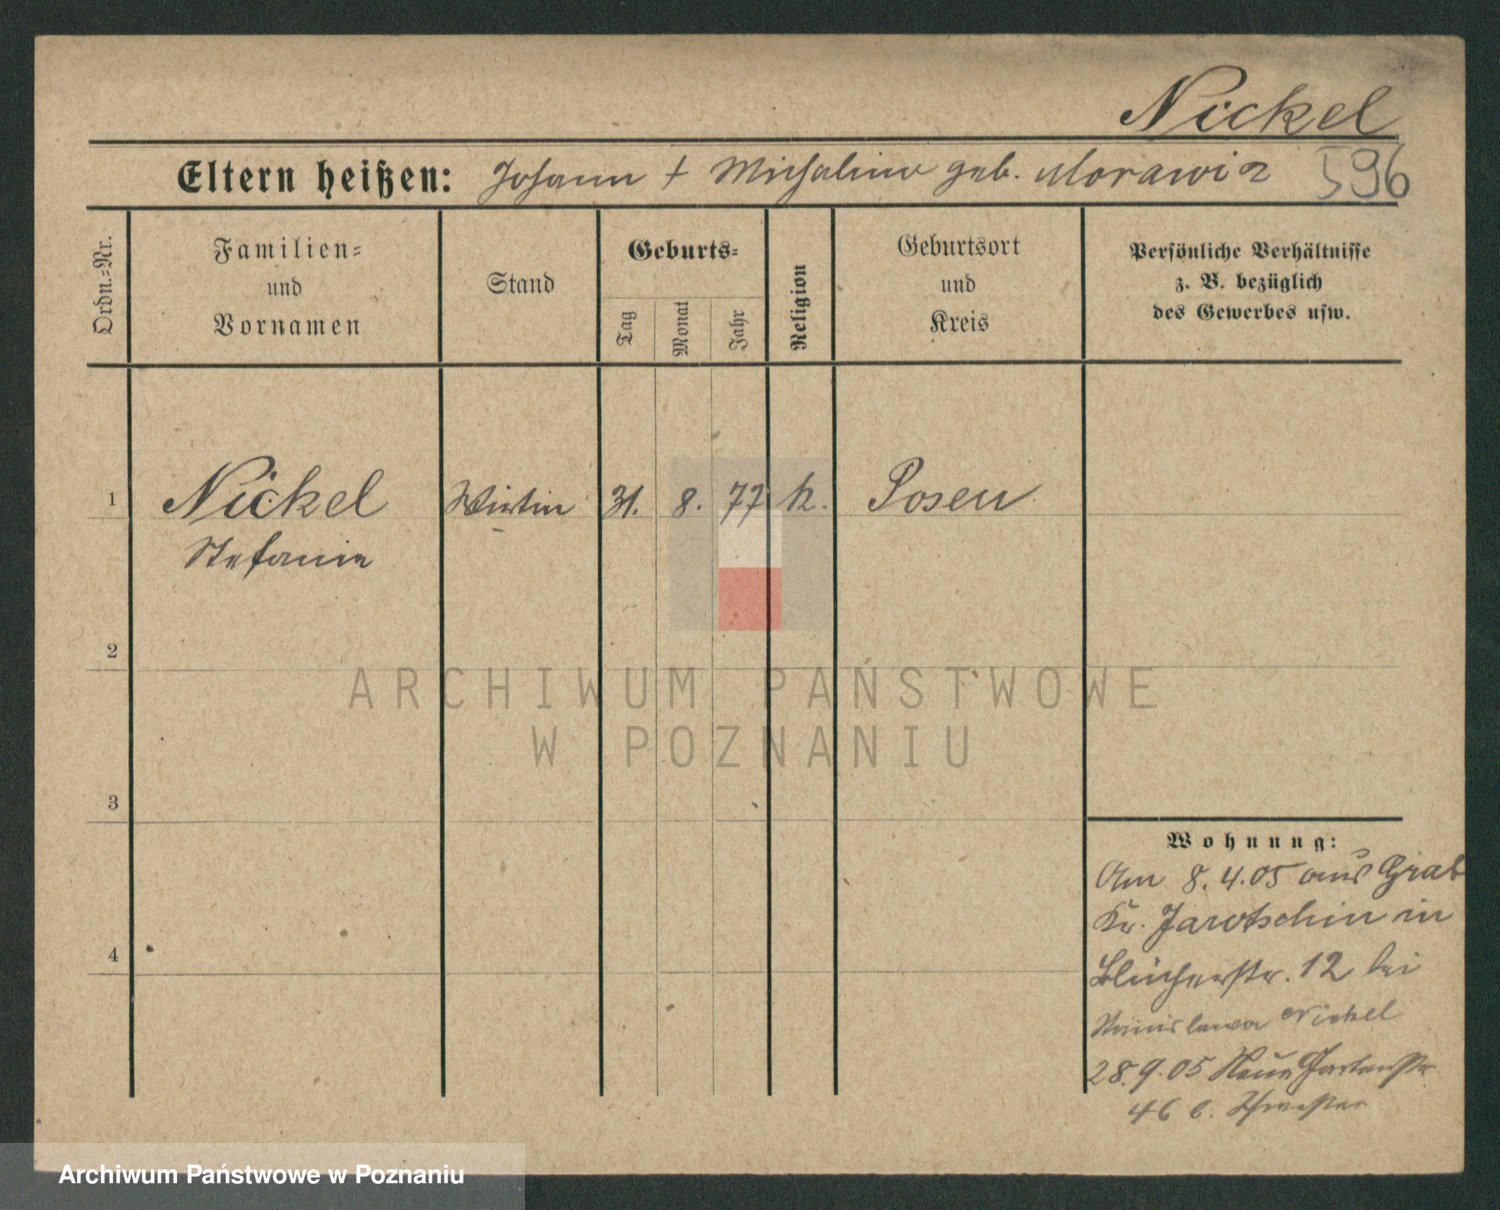 Nickel
Eltern heißen: Johann + Michalina geb. Morawin 596
Ordn.=Nr.
Familien=
und
Vornamen
Stand
Geburts=
Tag
Monat
Jahr
Religion
Geburtsort
und
Kreis
Persönliche Verhältnisse
z. B. bezüglich
des Gewerbes usw.
1 Nickel Wirtin 31. 8. 77 k. Posen
Stefanie
2
ARCHIWUM PAŃSTWOWE
W POZNANIU
3
Wohnung:
Am 8.4.05 aus Grab
Kr. Jarotschin in
4
Blücherstr. 12 bei
Stanislawa Nickel
28.9.05 Neue Gartenstr.
46 b. Schwester
Archiwum Państwowe w Poznaniu